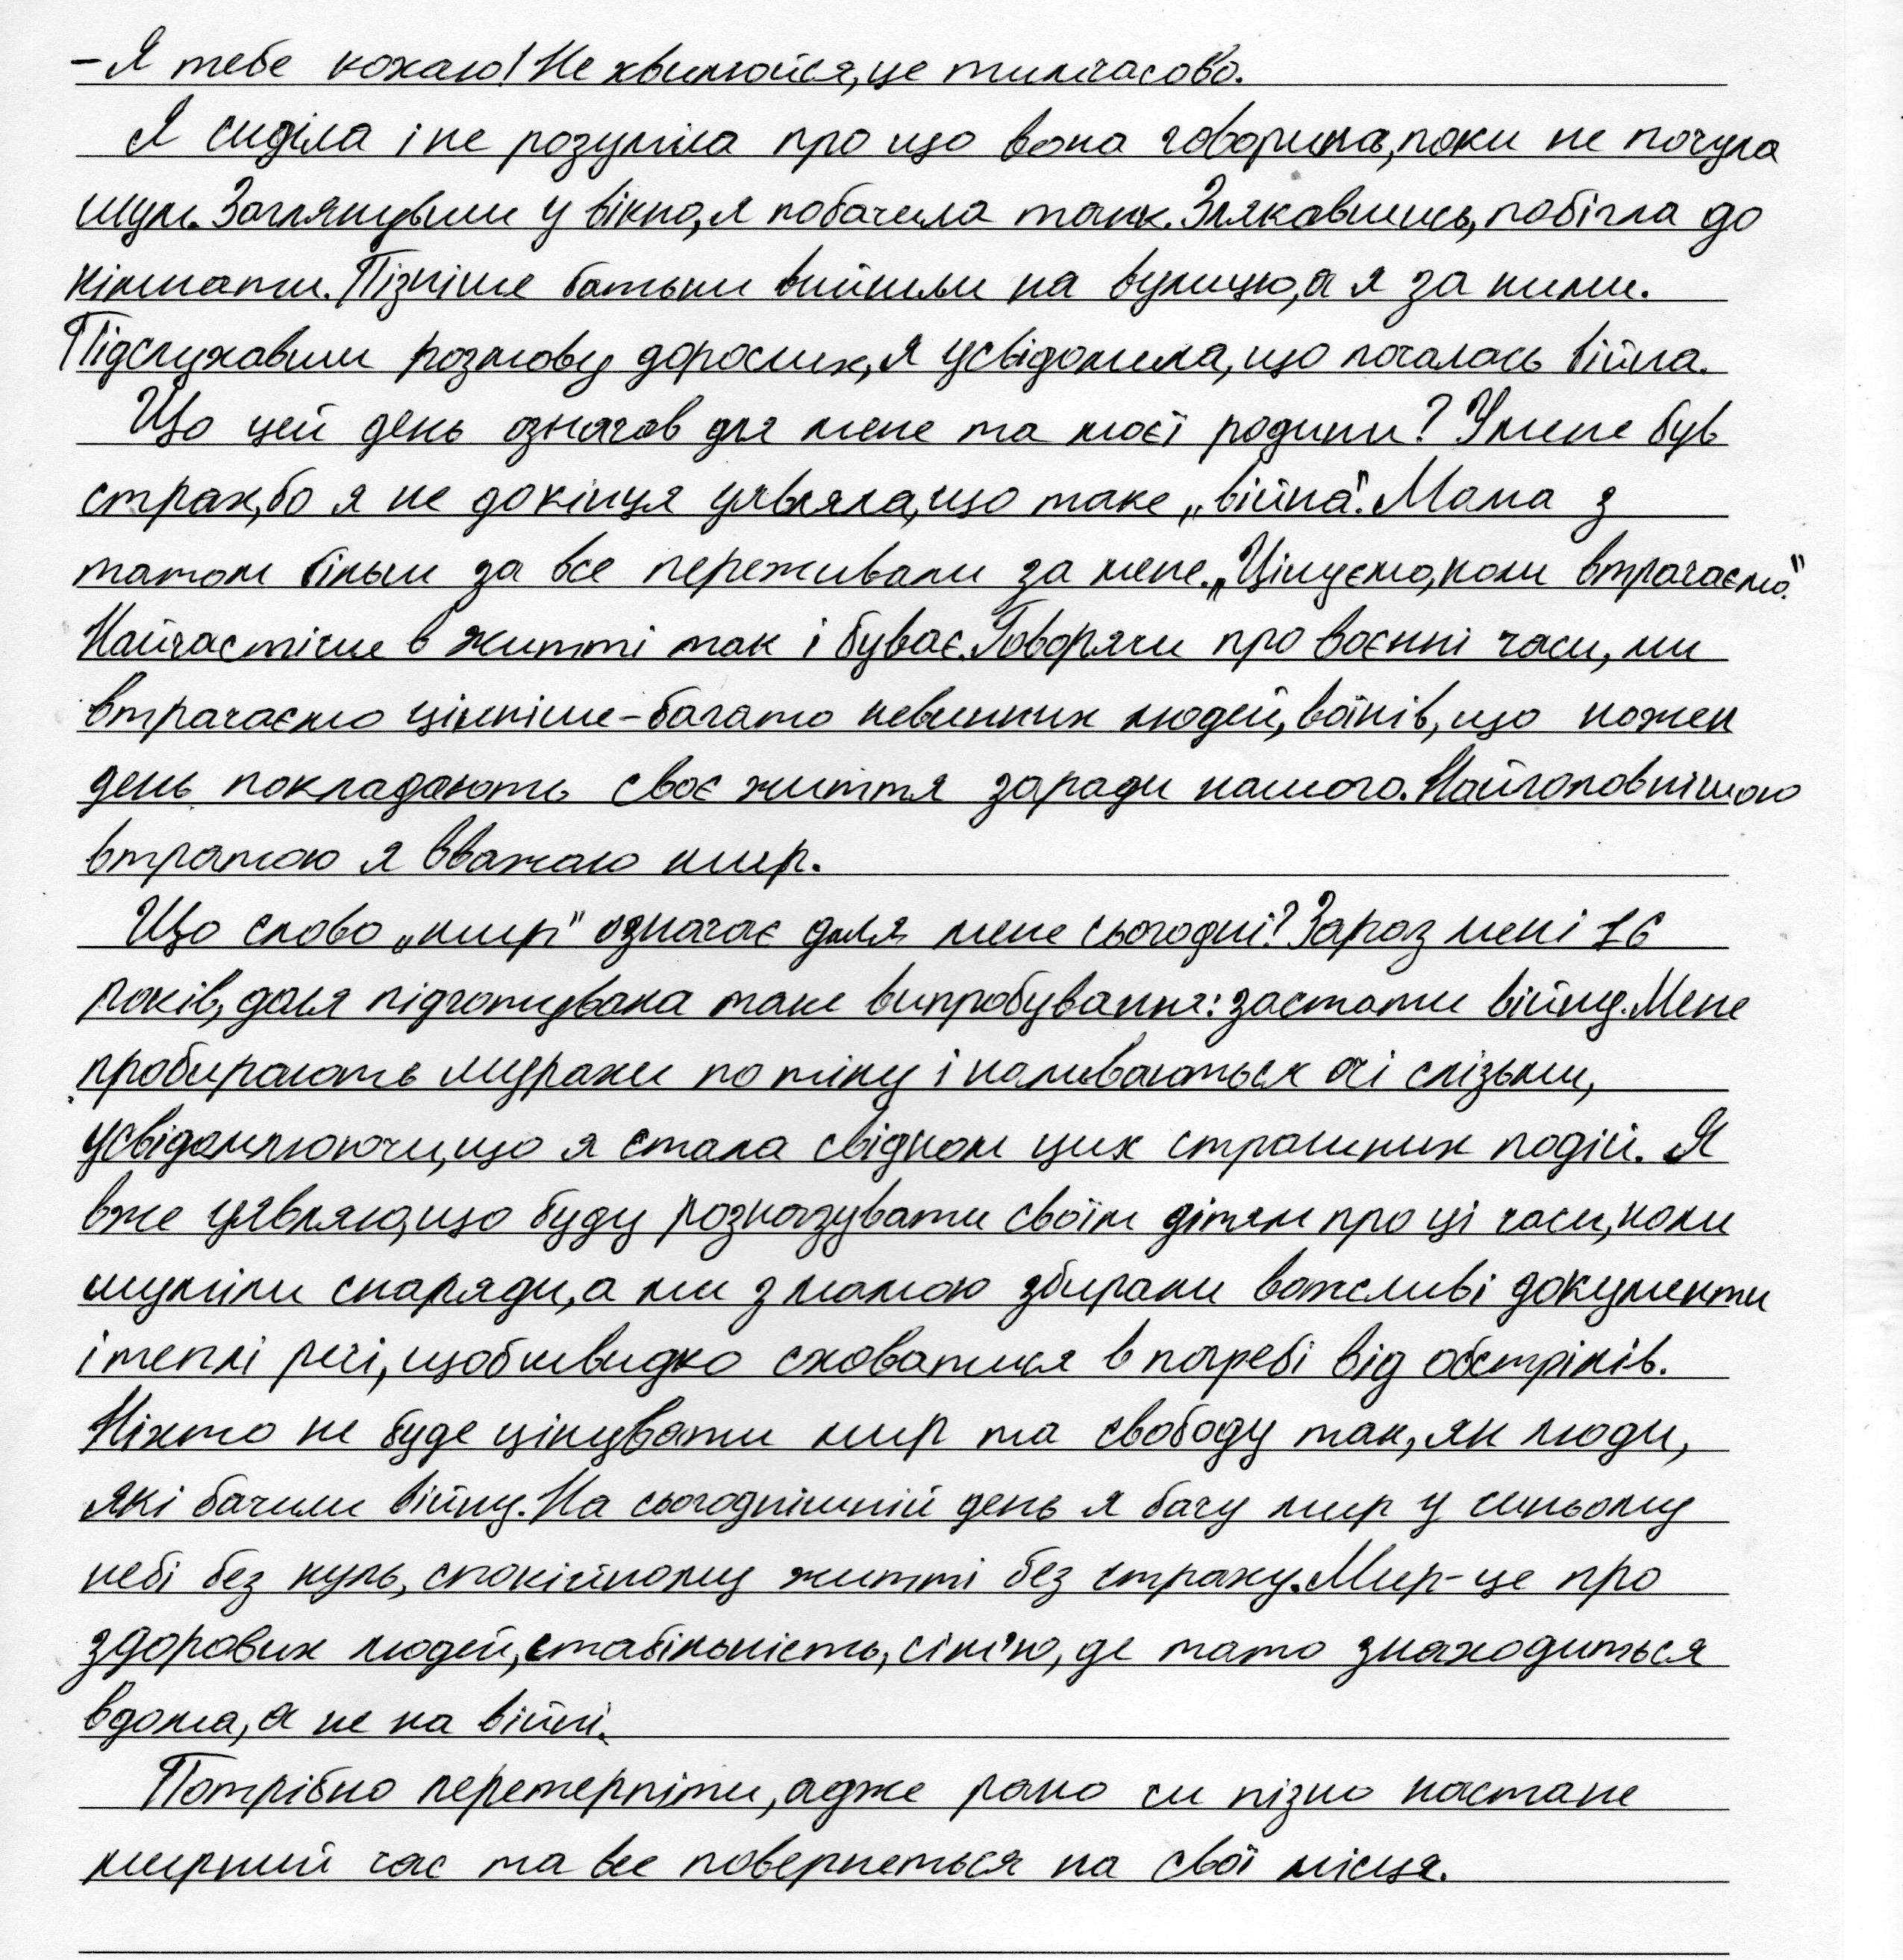 - Я тебе кохаю! Не хвилюйся, це тимчасово.
Я сиділа і не розуміла про що вона говорила, поки не почула
шум. Заглянувши у вікно, я побачила танк. Злякавшись, побігла до
кімнати. Пізніше батьки вийшли на вулицю, а я за ними.
Підслухавши розмову дорослих, я усвідомила, що почалась війна.
Що цей день означав для мене та моєї родини? У мене був
страх, бо я не до кінця уявляла, що таке „війна". Мама з
татом більш за все переживали за мене. „Цінуємо, коли втрачаємо."
Найчастіше в житті так і буває. Говорячи про воєнні часи, ми
втрачаємо цінніше - багато невинних людей, воїнів, що кожен
день покладають своє життя заради нашого. Найголовнішою
втратою я вважаю мир.
Що слово „мир" означає для мене сьогодні? Зараз мені 16
років, доля підготувала таке випробування: застати війну. Мене
пробирають мурахи по тілу і наливаються очі слізьми,
усвідомлюючи, що я стала свідком цих страшних подій. Я
вже уявляю, що буду розказувати своїм дітям про ці часи, коли
шуміли снаряди, а ми з мамою збирали важливі документи
і теплі речі, щоб швидко сховатися в погребі від обстрілів.
Ніхто не буде цінувати мир та свободу так, як люди,
які бачили війну. На сьогоднішній день я бачу мир у синьому
небі без куль, спокійному житті без страху. Мир - це про
здорових людей, стабільність, сім'ю, де тато знаходиться
вдома, а не на війні.
Потрібно перетерпіти, адже рано чи пізно настане
мирний час та все повернеться на свої місця.